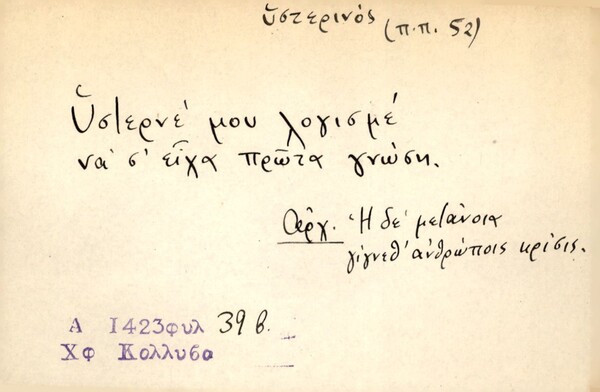 ὕστερινός (π.π. 52)
Ὕστερνέ μου λογισμέ
νά σ' εἶχα πρῶτα γνώση.
Ἀρχ. Ἡ δέ μετάνοια
γίγνεθ' ἀνθρώποις κρίσις.
Α 1423φυλ 39 β.
Χφ Κολλυβα